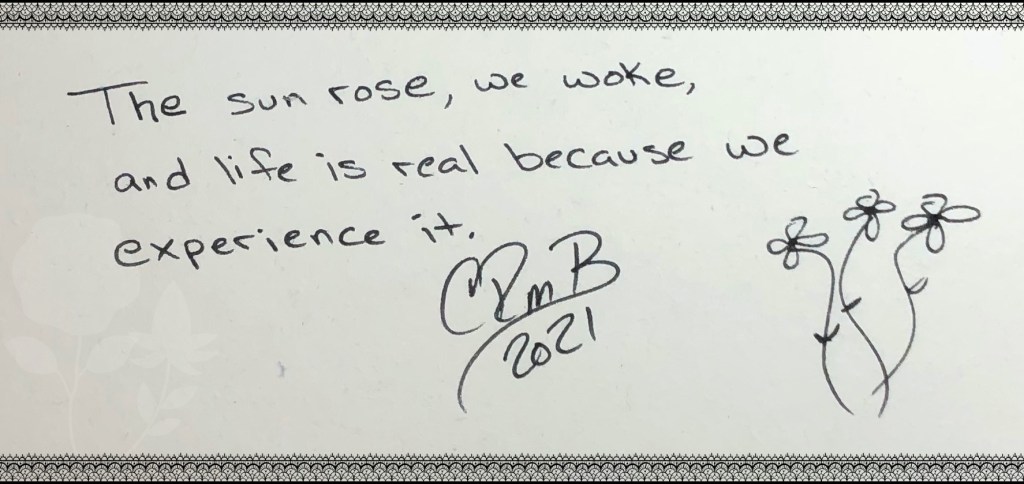 The sun rose, we woke,
and life is real because we
experience it.
CRmB
2021